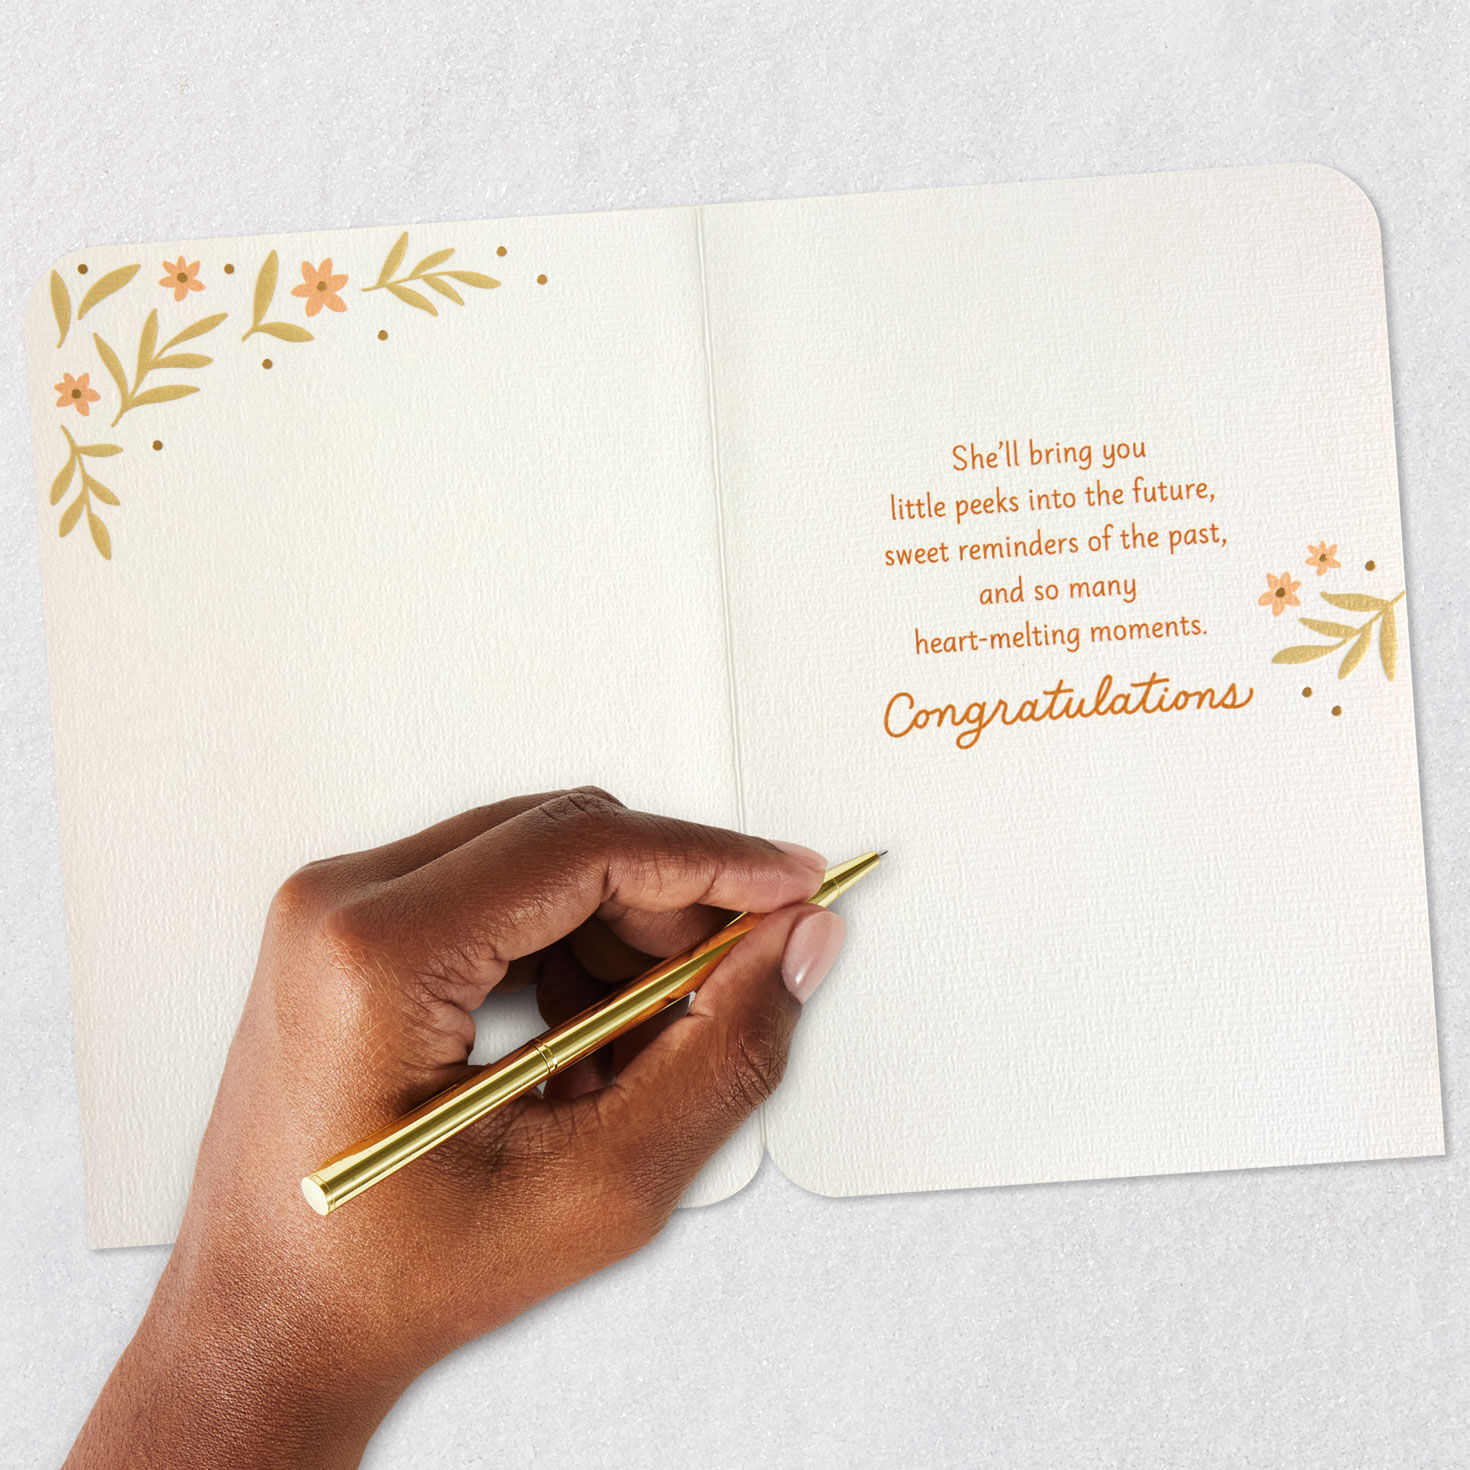 She’ll bring you
little peeks into the future,
sweet reminders of the past,
and so many
heart-melting moments.
Congratulations